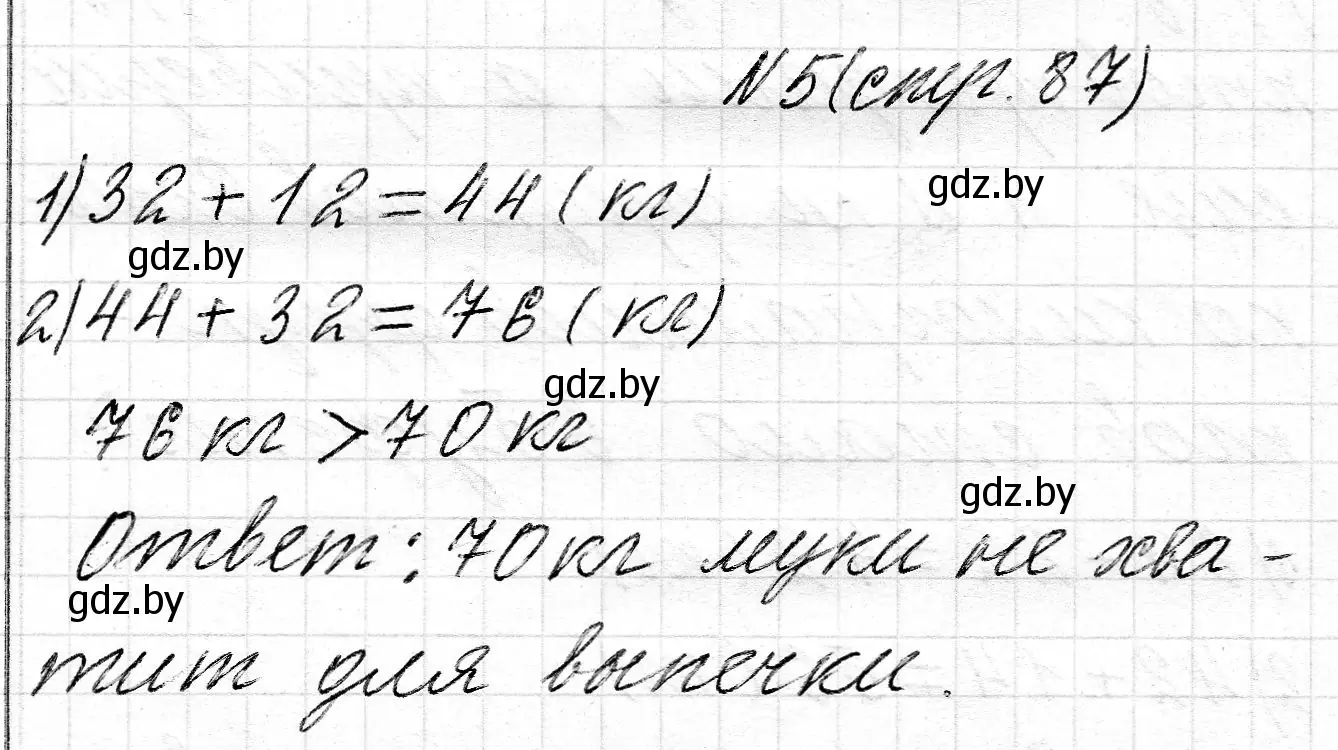 N5(стр. 87)
1) 32 + 12 = 44 (кг)
gdz.by
gdz.by
2) 44 + 32 = 76 (кг)
gdz.by
76 кг > 70 кг
gdz.by
Ответ: 70 кг муки не хва-
gdz.by
тит для выпечки.